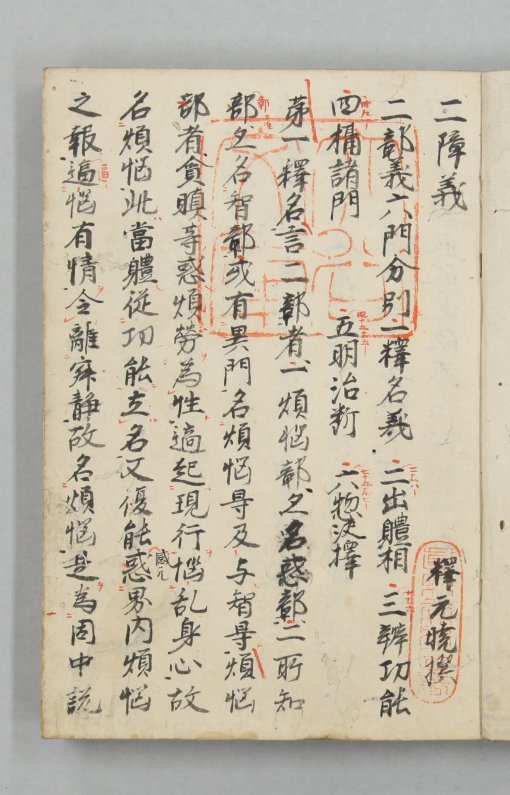 二障義
釋元曉撰
二鄣義六門分別一釋名義 二出體相 三辨功能
四攝諸門 五明治斷 六惣決擇
第一釋名言二鄣者一煩惱鄣亦名惑鄣二所知
鄣亦名智鄣或有異門名煩惱㝵及与智㝵煩惱
鄣者貪瞋等惑煩勞為性適起現行惱乱身心故
名煩惱此當體從功能立名又復能惑界内煩惱
之報逼惱有情令離寂静故名煩惱是為因中説